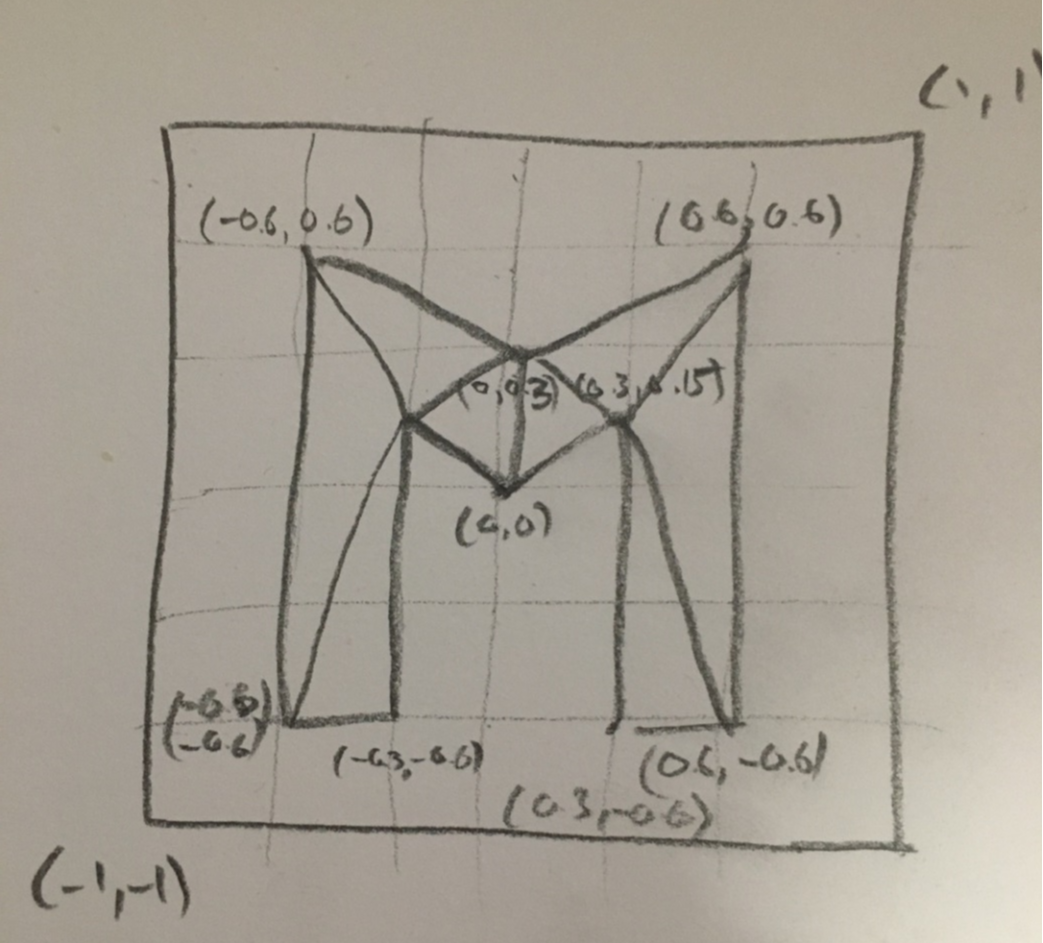 (1, 1)
(-0.6, 0.6)
(0.6, 0.6)
(0,0.3)
(0.3,0.15)
(0,0)
(-0.6,
-0.6)
(-0.3,-0.6)
(0.6, -0.6)
(0.3,-0.6)
(-1,-1)